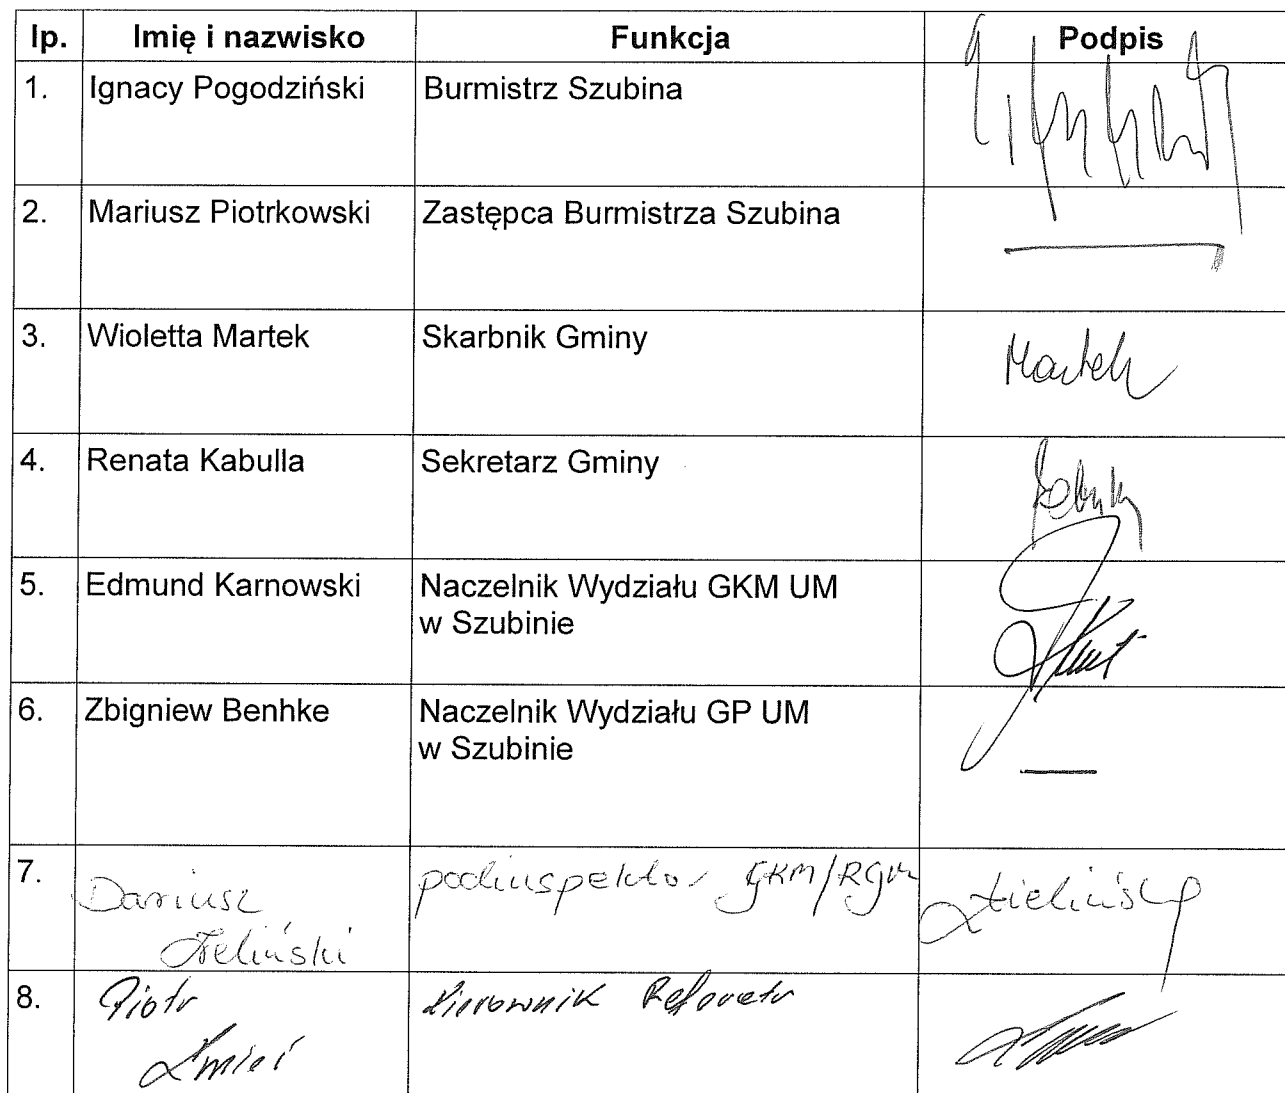 lp. Imię i nazwisko Funkcja Podpis
1. Ignacy Pogodziński Burmistrz Szubina
2. Mariusz Piotrkowski Zastępca Burmistrza Szubina
3. Wioletta Martek Skarbnik Gminy Martek
4. Renata Kabulla Sekretarz Gminy
5. Edmund Karnowski Naczelnik Wydziału GKM UM
w Szubinie
6. Zbigniew Benhke Naczelnik Wydziału GP UM
w Szubinie
7. Dariusz podinspektor GKM/RGM
Zieliński
8. Piotr Kierownik Referatu